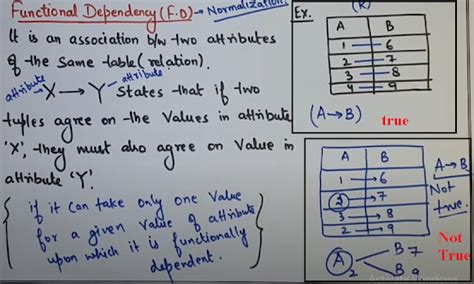 Functional Dependency (F.D) → Normalization.
It is an association b/w two attributes
of the same table (relation).
attribute X → Y attribute States that if two
tuples agree on the values in attribute
'X', they must also agree on value in
attribute 'Y'.
if it can take only one value
for a given value of attribute
upon which it is functionally
dependent.
Ex. (R)
A B
1 → 6
2 → 7
3 → 8
4 → 9
(A → B) true
A B
1 → 6
2 → 7
3 → 8
2 → 9
A → B
Not
true.
Not
True
A 2 B 7
B 9